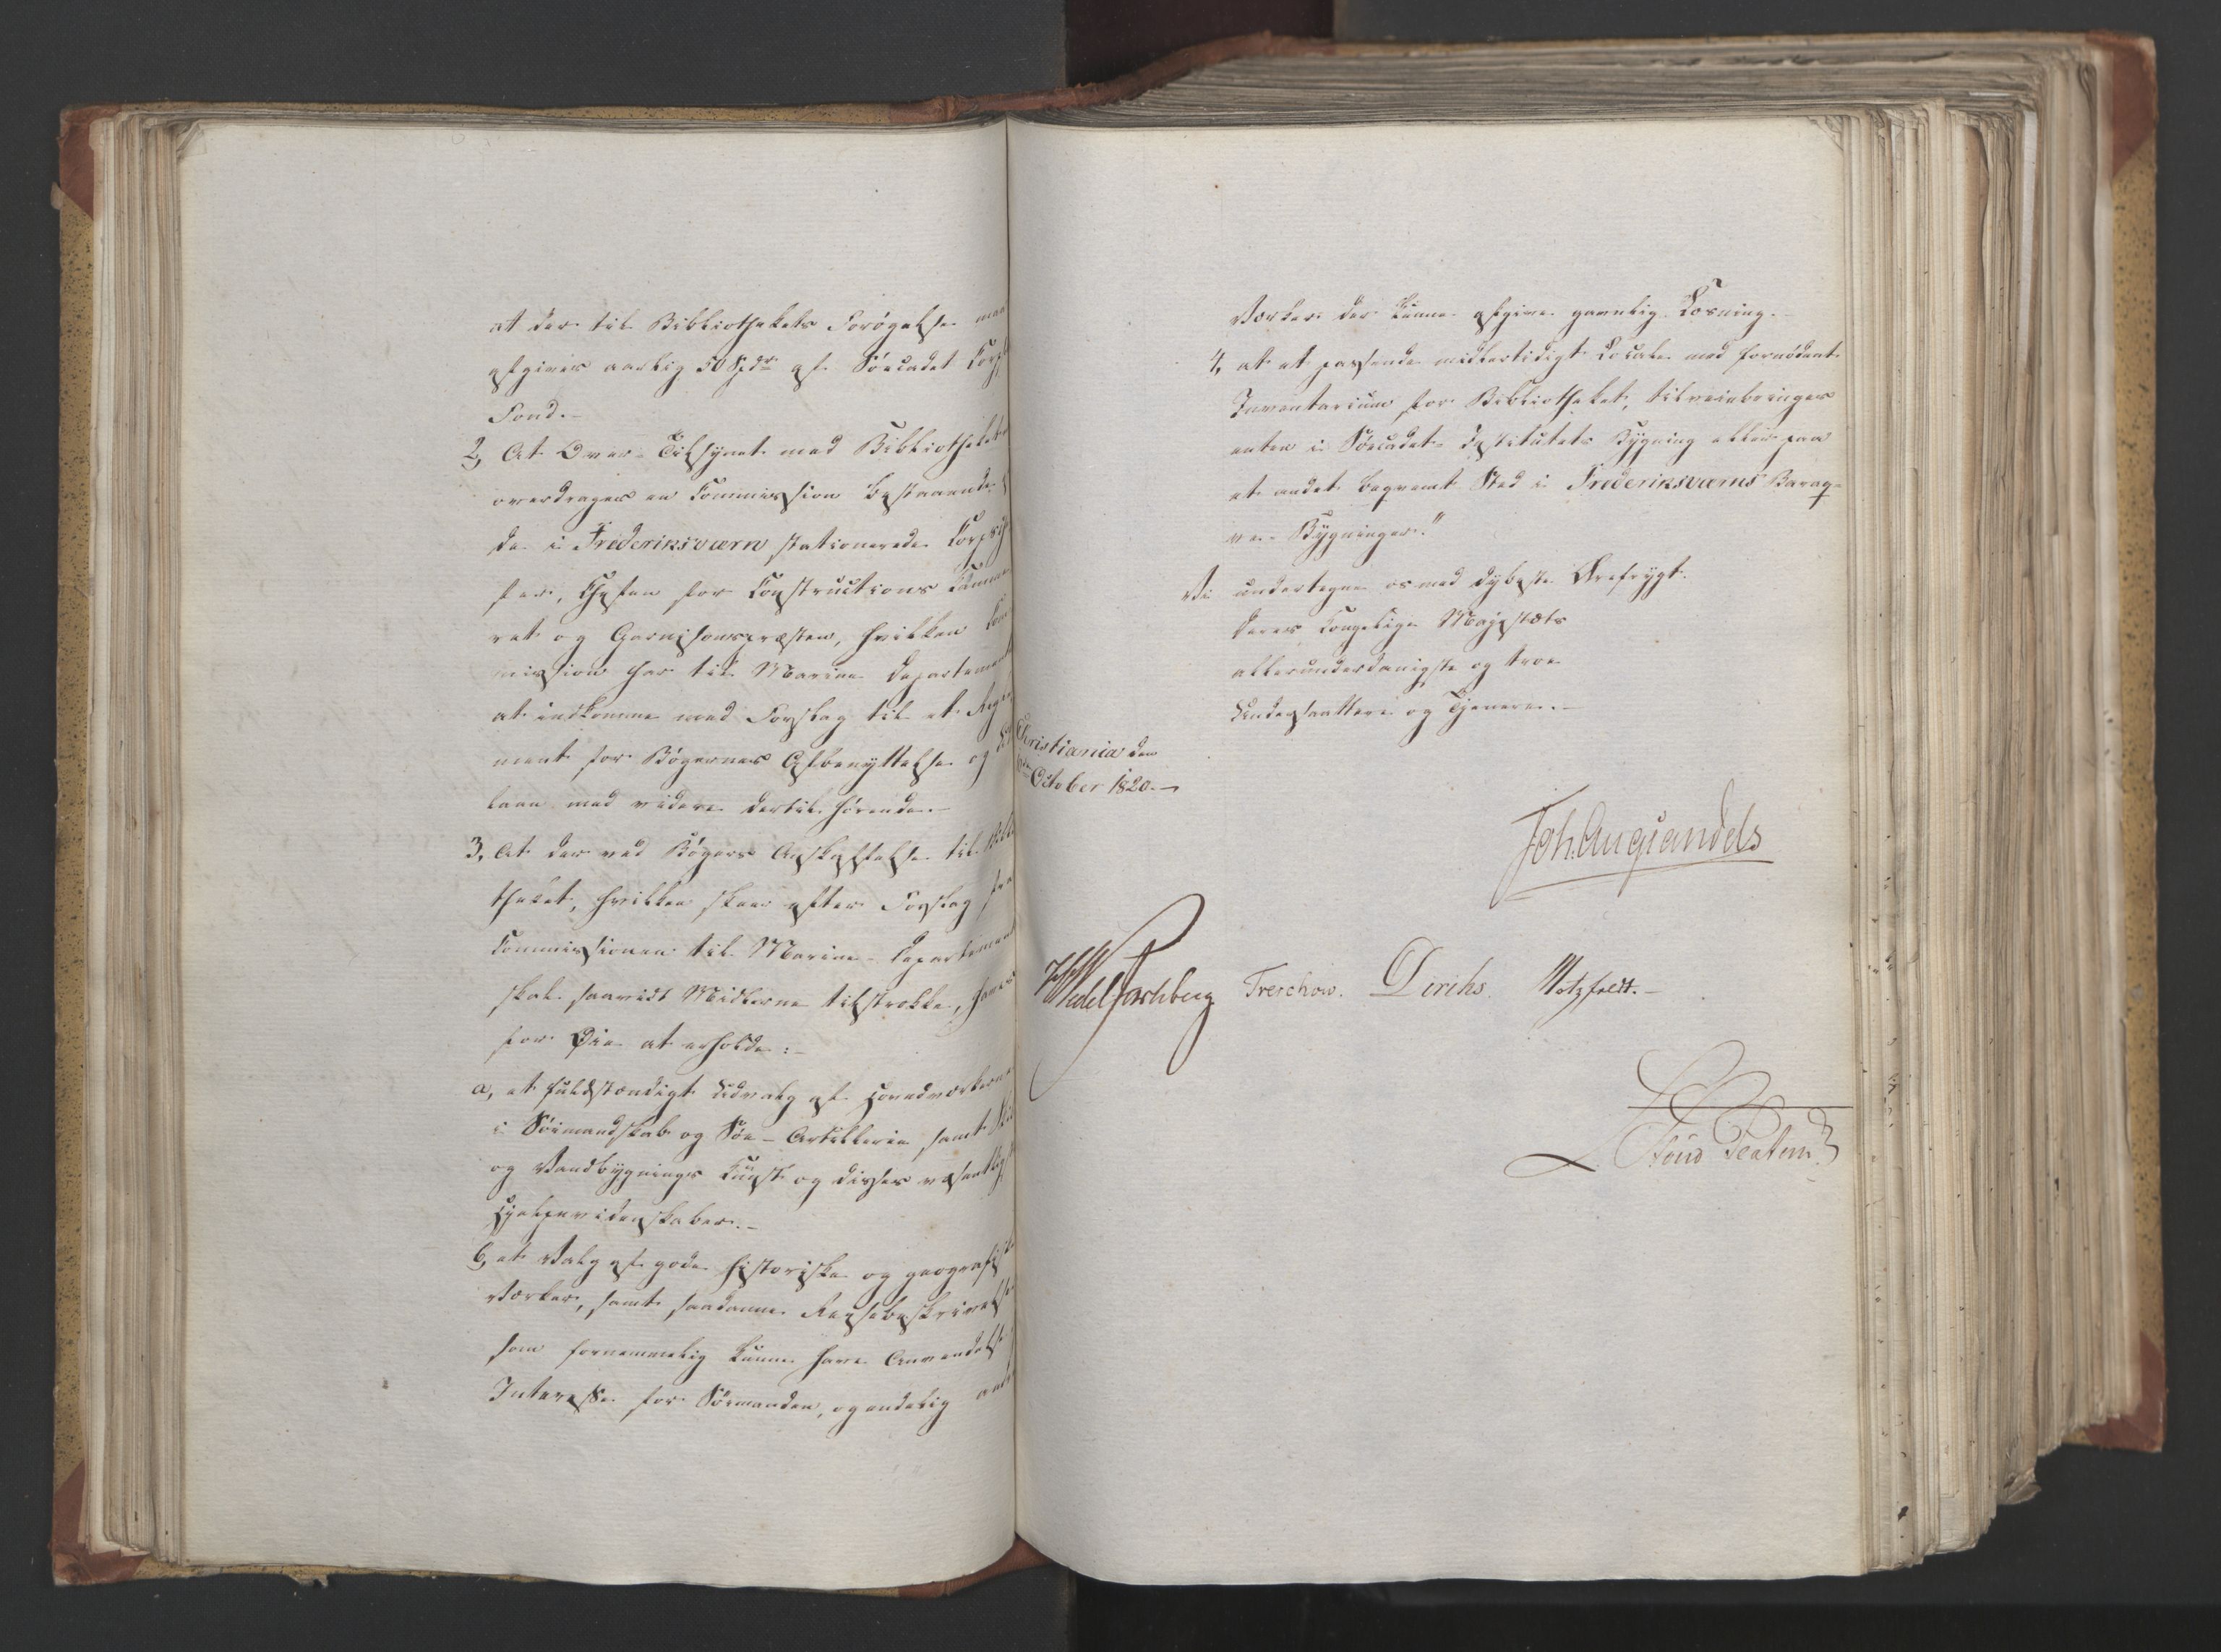 at der til Bibliothekets Forøgelse maa
afgives aarlig 50 Spdr af Søecadet Corps
Fond.-
2, At Over-Tilsynet med Bibliotheket
overdrages en Commission bestaaende
de i Frederiksværn stationerede Corps
Chefen for Constructions
ret og Garnisonspræsten, hvilken Com
mission har til Marine Departement
at indkomme med Forslag til et Regle
ment for Bøgernes Afbenyttelse og Ud
laan med videre dertil hørende.-
3, At der ved Bøgers Anskaffelse til Biblio
theket, hvilken skeer efter Forslag fra
Commissionen til Marine-Departement
skal saavidt Midlerne tilstrække, haves
for Øie at erholde:-
a, et fuldstændigt Udvalg af Hovedværkerne
i Søemandskab og Søe-Artillerie, samt Skibs
og Vandbygnings Kunst og disses væsentligste
Hjelpevidenskaber.-
b, et Valg af gode historiske og geografiske
Værker, samt saadanne Reisebeskrivelser
som fornemmelig kunne have Anvendelse
Interesse for Sømanden, og endelig andre
Værker der kunne afgive gavnlig Læsning.-
4, at et passende midlertidigt Locale med fornødent
Inventarium for Bibliotheket, tilveiebringes
enten i Søecadet-Institutets Bygning eller paa
et andet beqvemt Sted i Frederiksværns Baraq-
ve-Bygninger."
Vi undertegne os med dybeste Ærefrygt.
Deres Kongelige Majestæts
allerunderdanigste og troe
Undersaattere og Tjenere.-
Christiania den
October 1820.-
Joh. Aug Sandels
HWedel Jarlsberg Treschow. Diriks. Motzfeldt.-